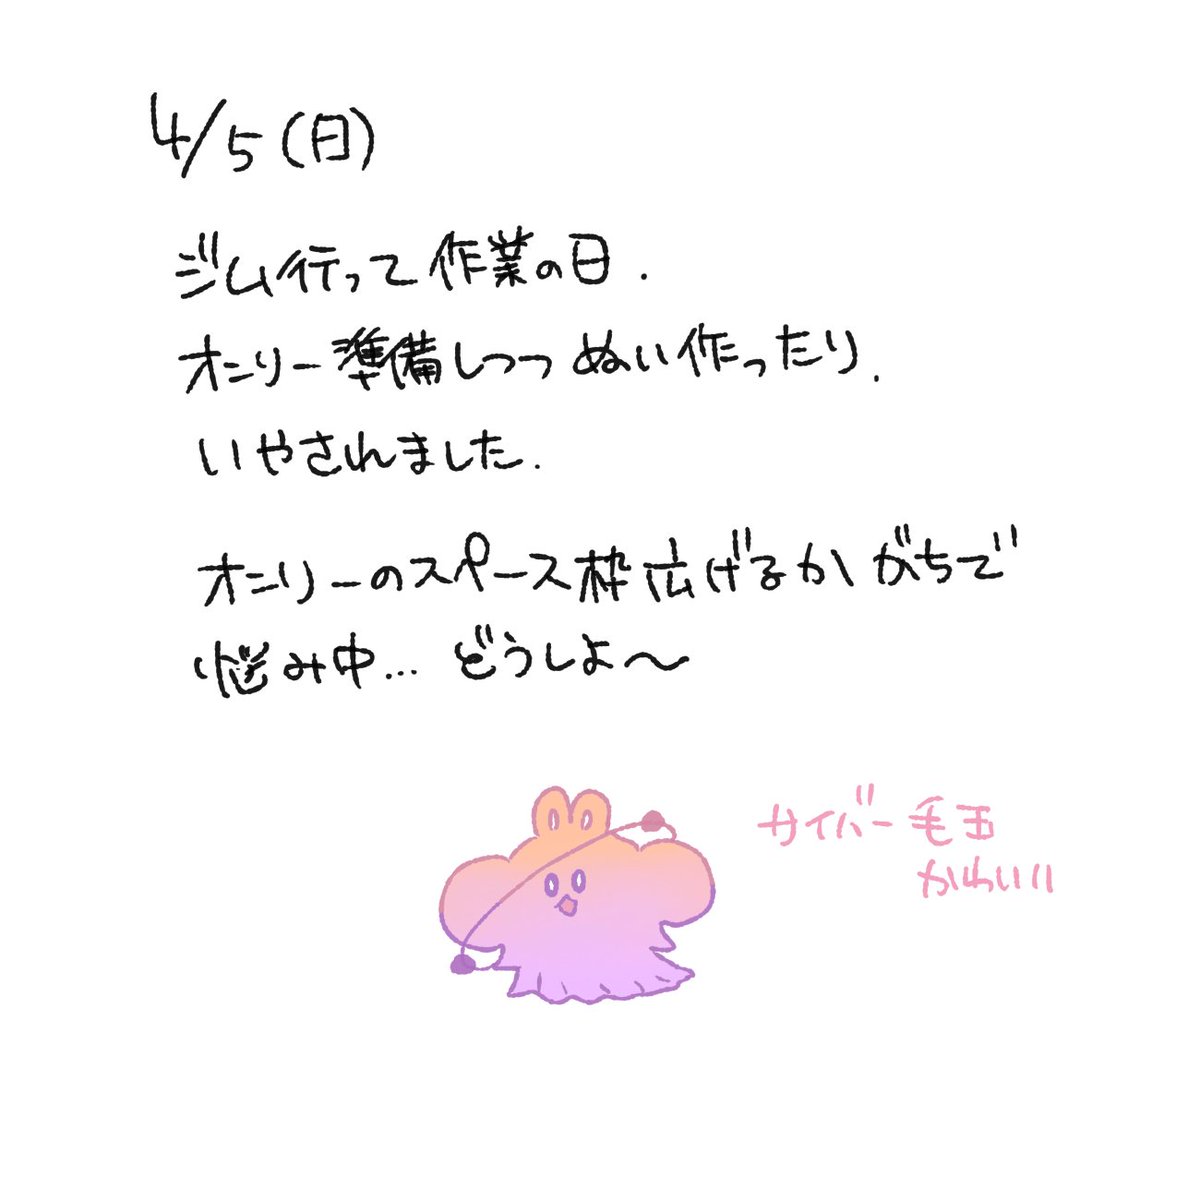 4/5(日)
ジム行って作業の日.
オンリー準備しつつぬい作ったり.
いやされました.
オンリーのスペース枠広げるかがちで
悩み中... どうしよ〜
サイバー毛玉
かわいい